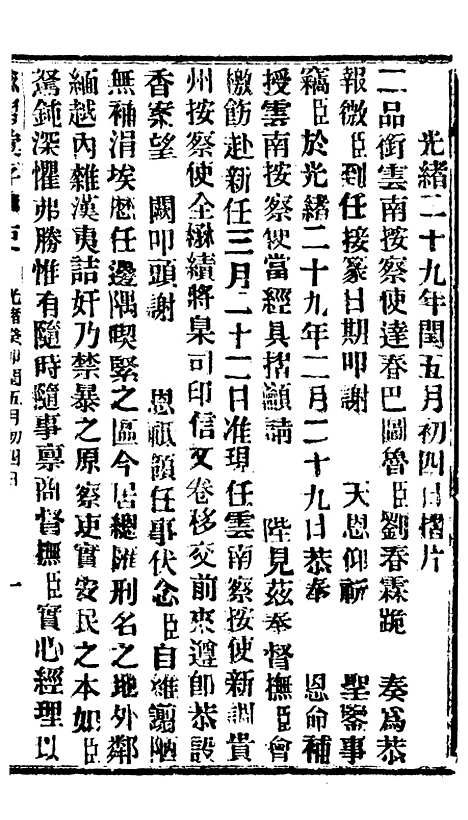 光緒二十九年閏五月初四日摺片
二品銜雲南按察使達春巴圖魯臣劉春霖跪 奏爲恭
報微臣到任接篆日期叩謝 天恩仰祈 聖鑒事
竊臣於光緒二十九年二月二十九日恭奉 恩命補
授雲南按察使當經具摺籲請 陛見茲奉督撫臣會
檄飭赴新任三月二十二日准現任雲南察按使新調貴
州按察使全楙績將臬司印信文卷移交前來遵即恭設
香案望 闕叩頭謝 恩祇領任事伏念臣自維譾陋
無補涓埃歷任邊隅喫緊之區今居總匯刑名之地外鄰
緬越內雜漢夷詰奸乃禁暴之原察吏實安民之本如臣
駑鈍深懼弗勝惟有隨時隨事稟商督撫臣實心經理以
光緒癸卯閏五月初四日 一